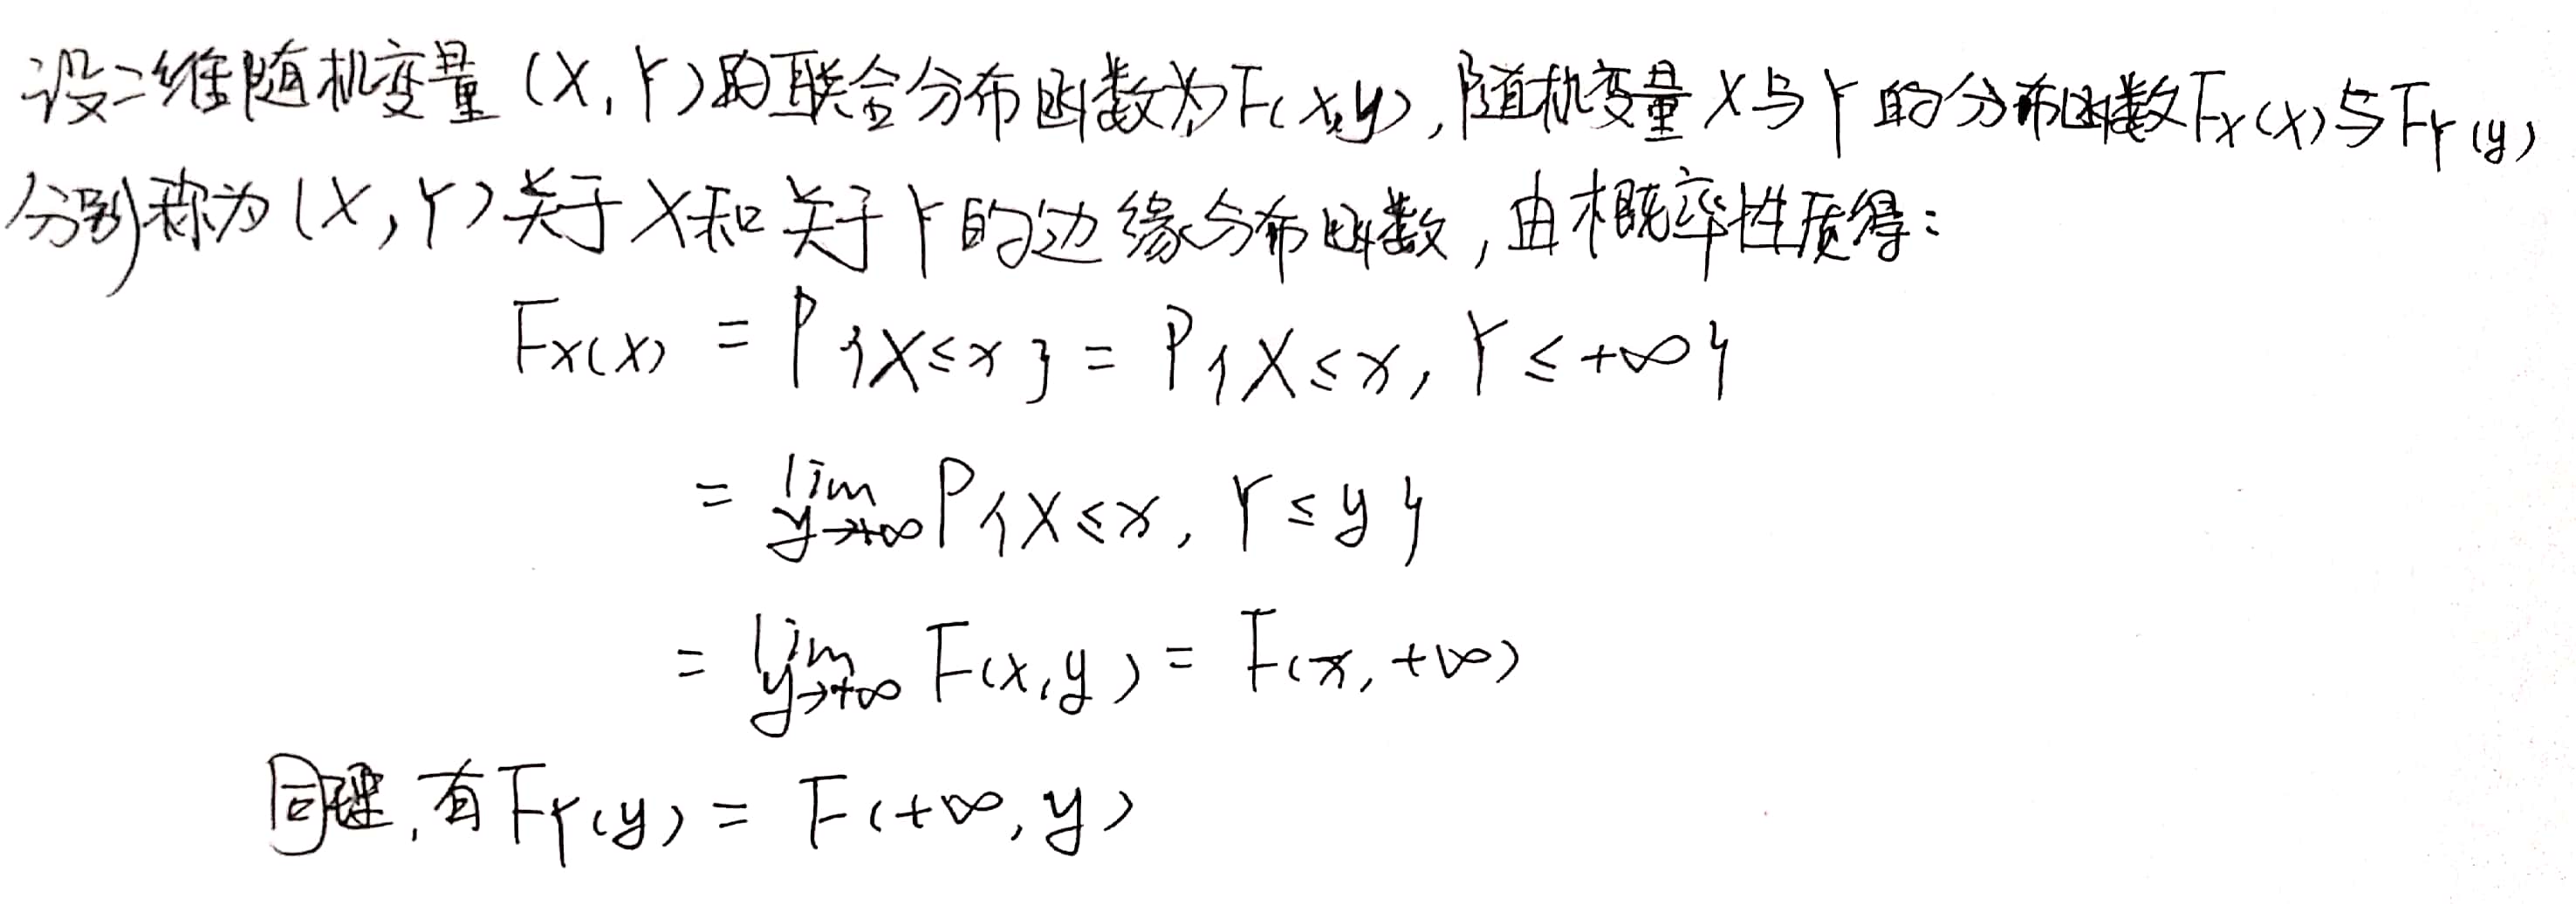 设二维随机变量 (X,Y)的联合分布函数为F(x,y),随机变量X与Y的分布函数F_X(x)与F_Y(y)
分别称为(X,Y)关于X和关于Y的边缘分布函数,由概率性质得:
F_X(x) = P{X≤x} = P{X≤x, Y≤+∞}
= lim_{y→+∞} P{X≤x, Y≤y}
= lim_{y→+∞} F(x,y) = F(x,+∞)
同理,有F_Y(y) = F(+∞,y)